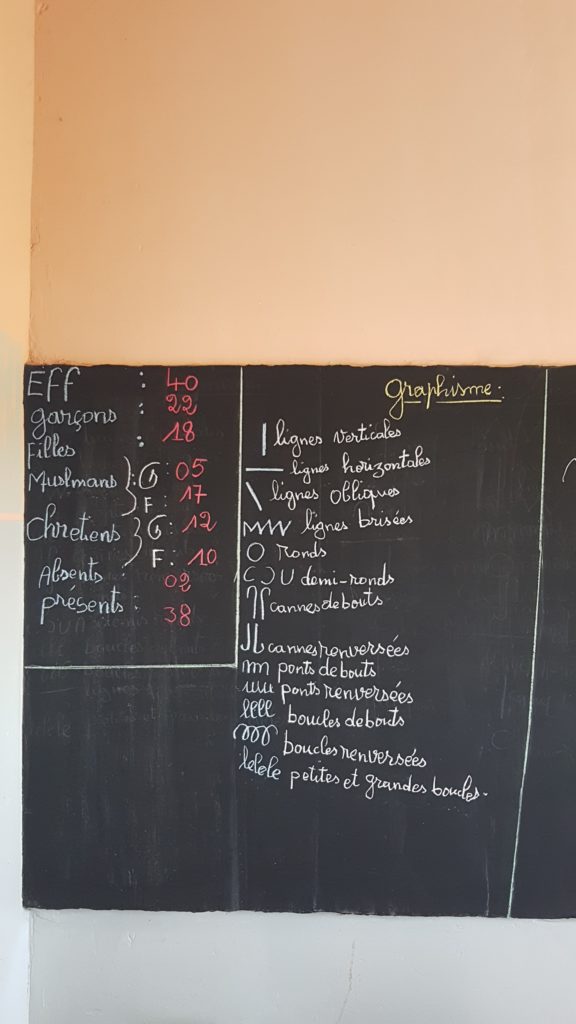 Eff : 40
garçons 22
Filles : 18
Muslmans G : 05
F : 17
Chretiens G : 12
F : 10
Absents 02
présents : 38
graphisme :
lignes verticales
lignes horizontales
lignes obliques
lignes brisées
ronds
demi-ronds
cannes debouts
cannes renversées
ponts debouts
ponts renversées
boucles debouts
boucles renversées
petites et grandes boucles.